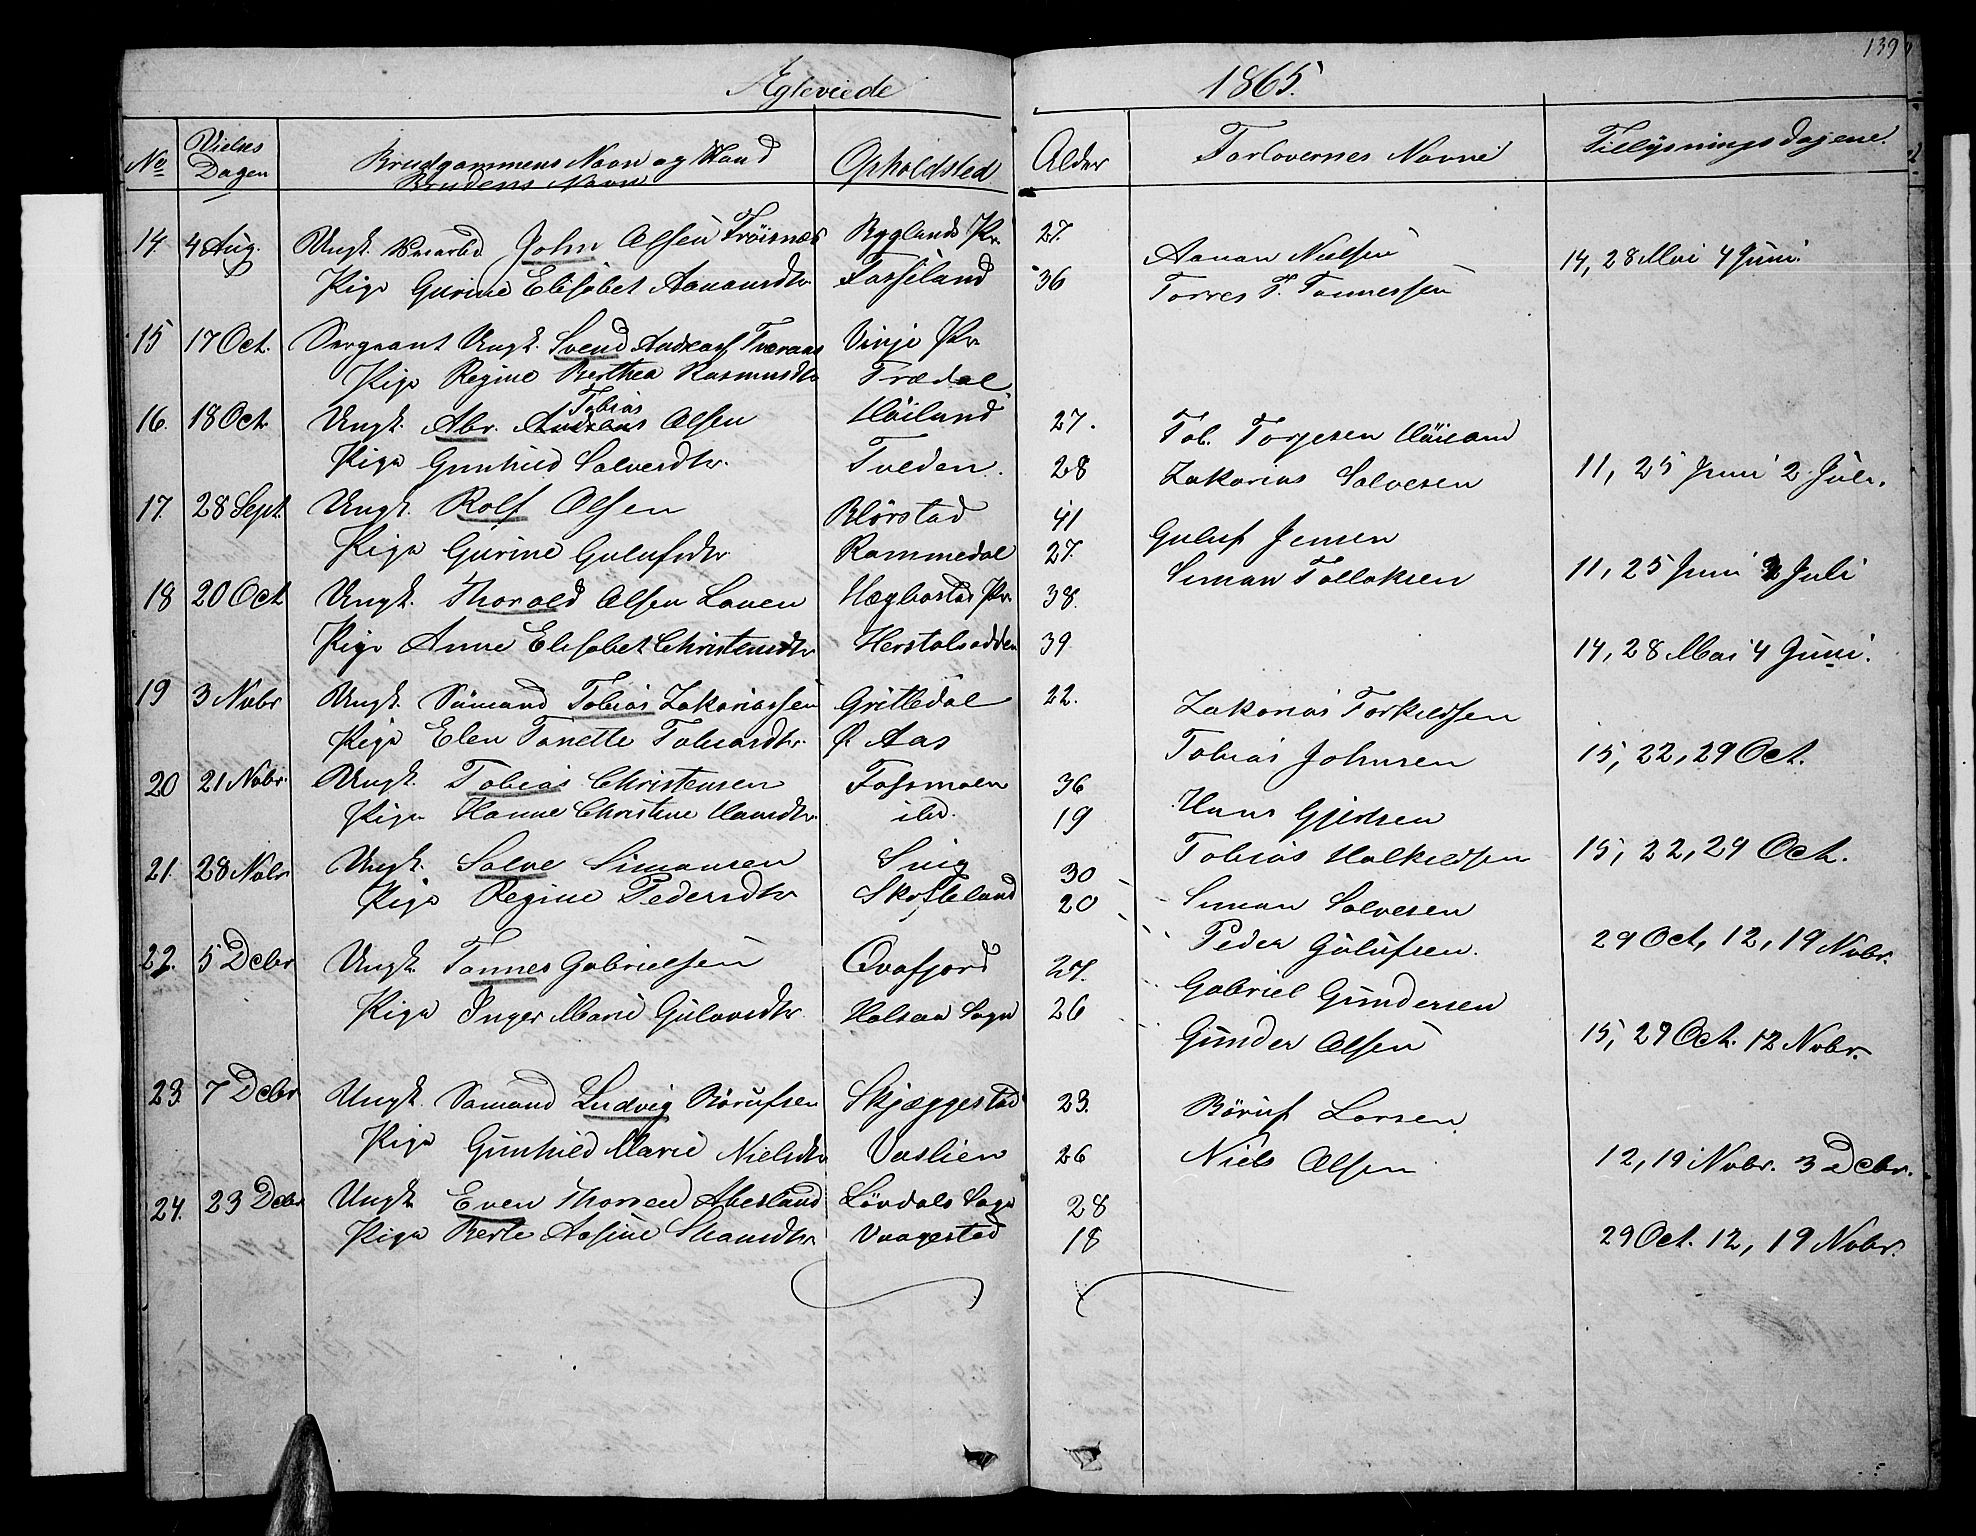 139
Ægteviede 1865.
No Vielses Dagen Brudgommens Navn og Stand Brudens Navn Opholdsted Alder Forlovernes Navne Tillysningsdagene.
14. 4 Aug. Ungk. John Olsen Frøisnæs Byglands Pr. 27. Aanon Nielsen 14, 28 Mai 4 Juni.
Pige Gurine Elisabet Aanonsdtr Fosseland 36 Torres T. Tønnessen
15 17 Oct. Sergeant Ungk. Svend Andreas Tveraas Vinje Pr.
Pige Regine Berthea Rasmusdtr Trædal
16. 18 Oct Ungk. Abr. Tobias Olsen Høiland 27. Tob. Torjesen Høiland
Pige Gunhild Salvesdtr. Tveden. 28 Zakarias Salvesen 11, 25 Juni 2 Juli.
17. 28 Sept. Ungk. Rolf Olsen Blørstad 41 Guluf Jensen
Pige Gurine Gulufsdtr Rommedal 27. Siman Tollaksen 11, 25 Juni 2 Juli
18 20 Oct Ungk. Thorald Olsen Lauen Hægbostad Pr. 38.
Pige Anne Elisabet Christensdtr Herstolsodden 39 14, 28 Mai 4 Juni.
19 3 Nobr Ungk. Sämand Tobias Zakariassen Grittedal 22. Zakarias Torkildsen
Pige Elen Tonette Tobiasdtr. Ø. Aas Tobias Johnsen 15, 22, 29 Oct.
20 21 Nobr. Ungk. Tobias Christensen Fossmoen 36 Hans Gjertsen
Pige Hanne Christine Hansdtr. ibd. 19 Tobias Halkildsen 15, 22, 29 Oct.
21. 28 Nobr Ungk. Salve Simonsen Snig 30 Siman Salvesen
Pige Regine Pedersdtr Skofteland 20 Peder Gulufsen. 29 Oct, 12, 19 Nobr.
22. 5 Debr Ungk. Tønnes Gabrielsen Qvafjord 27. Gabriel Gundersen
Pige Inger Marie Gulovsdtr. Holsaa Sogn 26 Gunder Olsen 15, 29 Oct. 12 Nobr.
23. 7 Debr Ungk. Samand Ludvig Börufsen Skjæggestad 23. Böruf Larsen
Pige Gunhild Marie Nielsdtr Vaslien 26 Niels Olsen 12, 19 Nobr. 3 Debr.
24. 23 Debr Ungk. Even Thorsen Abesland Løvdals Sogn 28
Pige Berte Aasine Stiansdtr Vaagestad 18 29 Oct. 12, 19 Nobr.